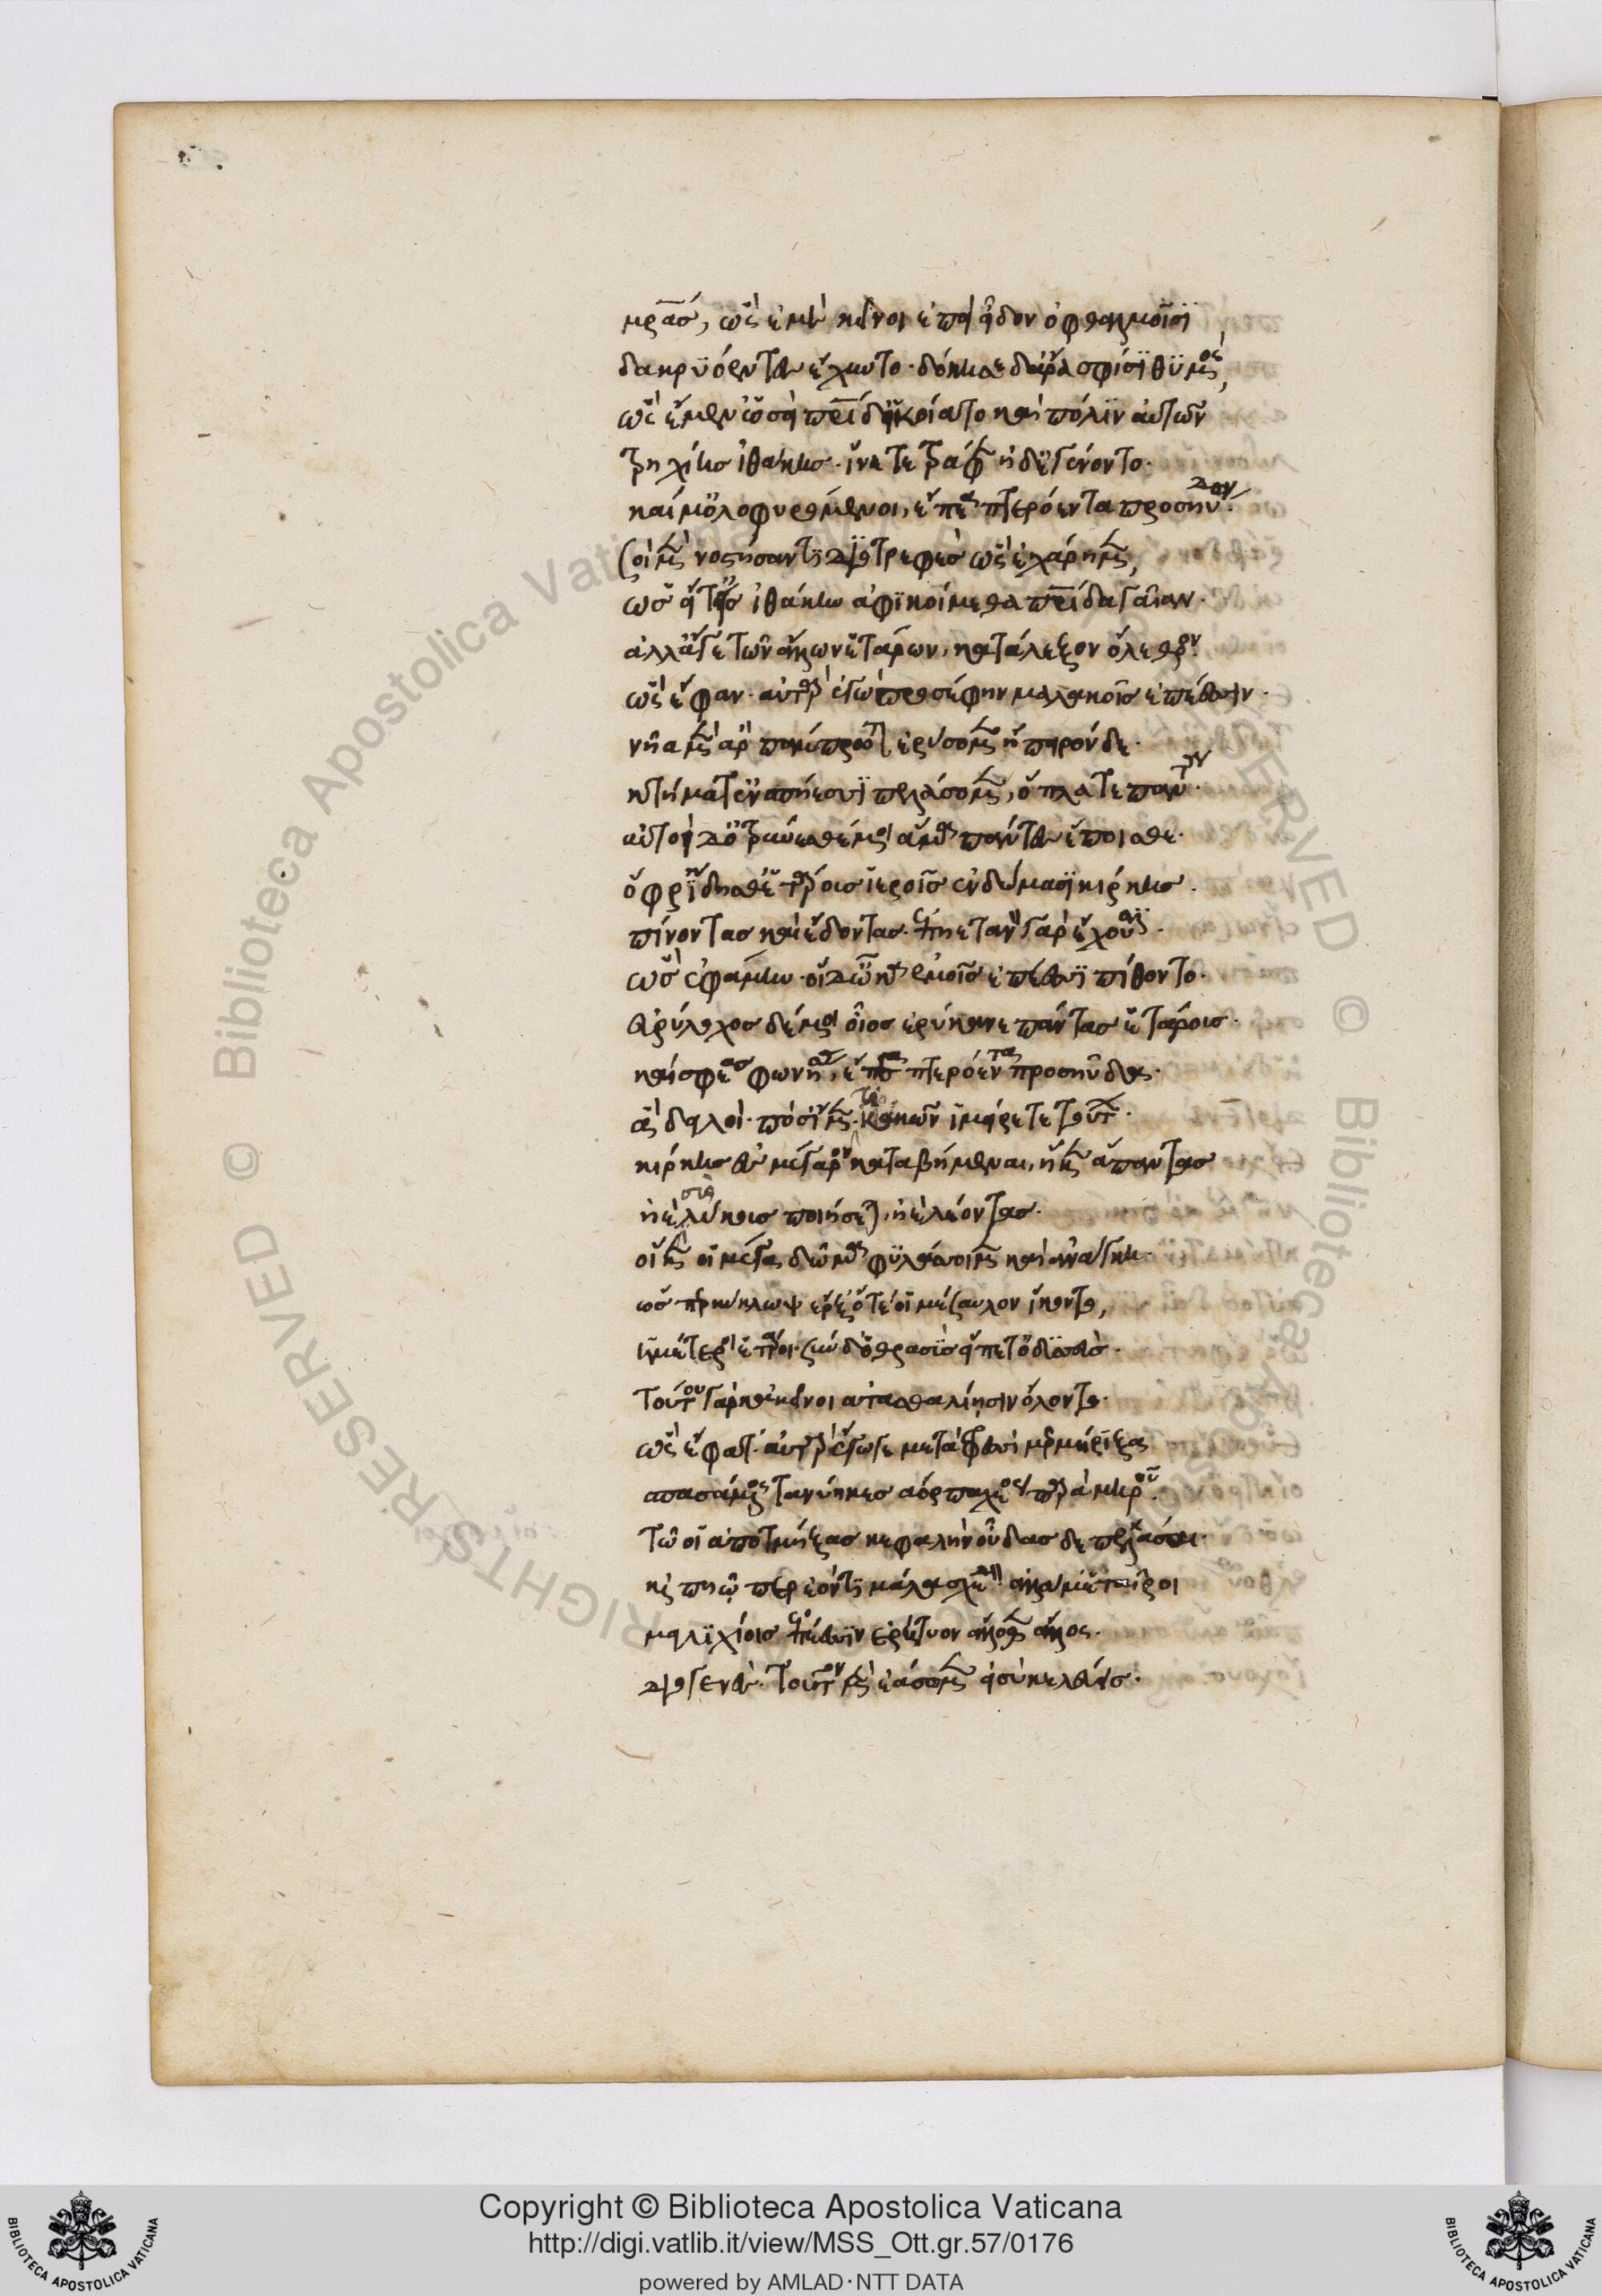 μρ̅ας, ὣς ἐμὲ κεῖνοι ἐπεὶ ἴδον ὀφθαλμοῖσϊ
δακρϋόεντες ἔχυντο· δόκησε δ' ἄρα σφίσϊ θϋμὸς,
ὣς ἔμεν ὡς εἰ πρ̅ίδ' ἱκοίατο καὶ πόλϊν αὐτῶν
τρηχείης ἰθάκης· ἵνα τε τράφεν ἠδ' ἐγένοντο·
καί μ' ὀλοφυρόμενοι, ἔπεα πτερόεντα προσηύδων·
σοὶ μὲν νοστήσαντϊ διοτρεφὲς ὣς ἐχάρημεν,
ὡς εἴ τ' εἰς ἰθάκην ἀφϊκοίμεθα πρ̅ίδα γαῖαν·
ἀλλ' ἄγε τῶν ἄλλων ἑτάρων, κατάλεξον ὄλεθρον·
ὣς ἔφαν· αὐτὰρ ἐγὼ προσέφην μαλακοῖς ἐπέεσσιν·
νῆα μὲν ἂρ πάμπρωτον ἐρύσομεν ἤπειρόνδε·
κτήματα δ' ἐν σπήεσσϊ πελάσομεν, ὅπλα τε πάντα·
αὐτοὶ δ' ὀτρύνεσθέ μοι ἅμα πάντες ἕπεσθε·
ὄφρ' ἴδηθ' ἑτάροις ἱεροῖς ἐν δώμασϊ κίρκης·
πίνοντας καὶ ἔδοντας· ἐπηετανὸν γὰρ ἔχουσϊ·
ὣς ἐφάμην· οἱ δ' ὦκα ἐμοῖς ἐπέεσσϊ πίθοντο·
εὐρύλοχος δέ μοι οἶος ἐρύκανε πάντας ἑταίροις·
καί σφεας φωνήσας, ἔπεα πτερόεντα προσηύδα·
ἆ δειλοί· πόσ' ἴμεν· τί κακῶν ἱμείρετε τούτων·
κίρκης ἐς μέγαρον καταβήμεναι, ἥ κεν ἅπαντας
ἢ σῦς ἠὲ λύκους ποιήσεται, ἠὲ λέοντας·
οἵ κέν οἱ μέγα δῶμα φϋλάσσοιμεν καὶ ἀνάγκῃ·
ὥς περ κύκλωψ ἔρξ' ὅτέ οἱ μέσσαυλον ἵκοντο,
ἡμέτεροι ἕταροι· σὺν δ' ὁ θρασὺς εἵπετ' ὀδϋσσεύς·
τούτου γὰρ καὶ κεῖνοι ἀτασθαλίῃσιν ὄλοντο·
ὣς ἔφατ'· αὐτὰρ ἔγωγε μετὰ φρεσὶ μερμήριξα
σπασάμενος τανύηκες ἄορ παχέος παρὰ μηροῦ·
τῷ οἱ ἀποτμήξας κεφαλὴν οὖδας δὲ πελάσσαι·
καὶ πηῷ περ ἐόντϊ μάλα σχεδόν· ἀλλά μ' ἑταῖροι
μειλϊχίοις ἐπέεσσϊν ἐρήτυον ἄλλοθεν ἄλλος·
διογενὲς· τοῦτον μὲν ἐάσομεν εἰ σὺ κελεύεις·
Copyright © Biblioteca Apostolica Vaticana
http://digi.vatlib.it/view/MSS_Ott.gr.57/0176
powered by AMLAD·NTT DATA